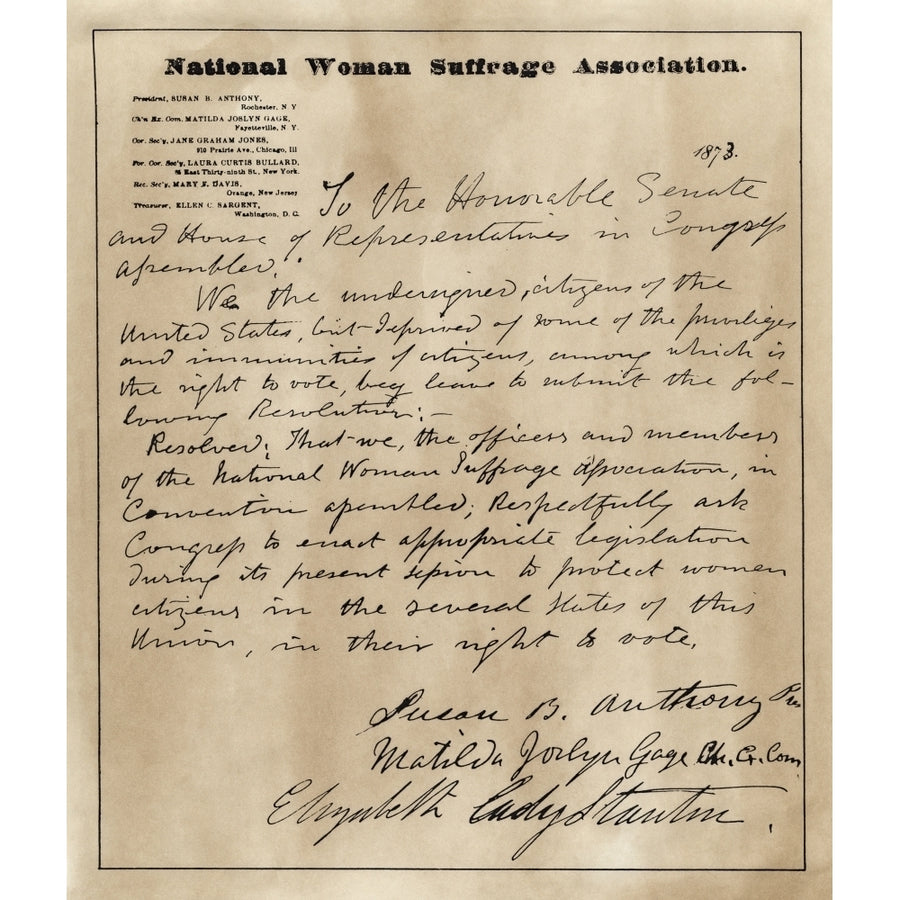 National Woman Suffrage Association.
President, SUSAN B. ANTHONY,
Rochester, N. Y
Ch'n Ex. Com. MATILDA JOSLYN GAGE,
Fayetteville, N. Y.
Cor. Sec'y, JANE GRAHAM JONES,
910 Prairie Ave., Chicago, Ill
For. Cor. Sec'y, LAURA CURTIS BULLARD,
East Thirty-ninth St., New York.
Rec. Sec'y, MARY F. DAVIS,
Orange, New Jersey
Treasurer, ELLEN C. SARGENT,
Washington, D. C.
1873.
To the Honorable Senate
and House of Representatives in Congress
assembled.
We the undersigned, citizens of the
United States, but deprived of some of the privileges
and immunities of citizens, among which is
the right to vote, beg leave to submit the fol-
lowing Resolution:-
Resolved; That we, the officers and members
of the National Woman Suffrage Association, in
Convention assembled; Respectfully ask
Congress to enact appropriate legislation
during its present session to protect women
citizens in the several States of this
Union, in their right to vote.
Susan B. Anthony Pres
Matilda Joslyn Gage Ch. Ex. Com
Elizabeth Cady Stanton.